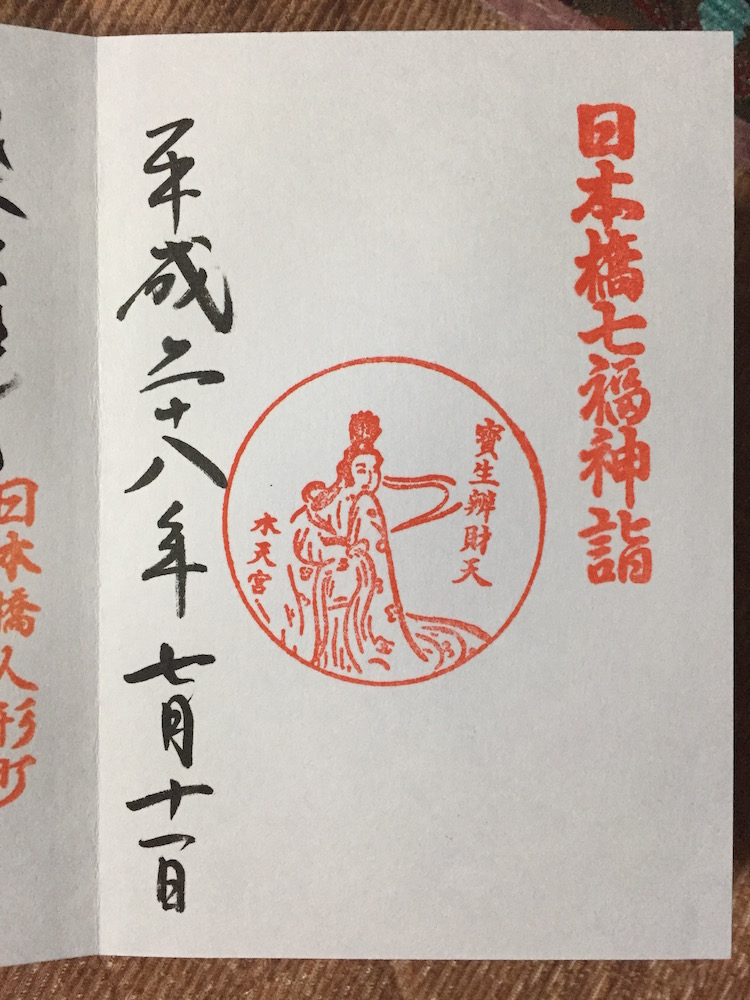 日本橋七福神詣
寳生辨財天
水天宮
平成二十八年七月十一日
日本橋人形町